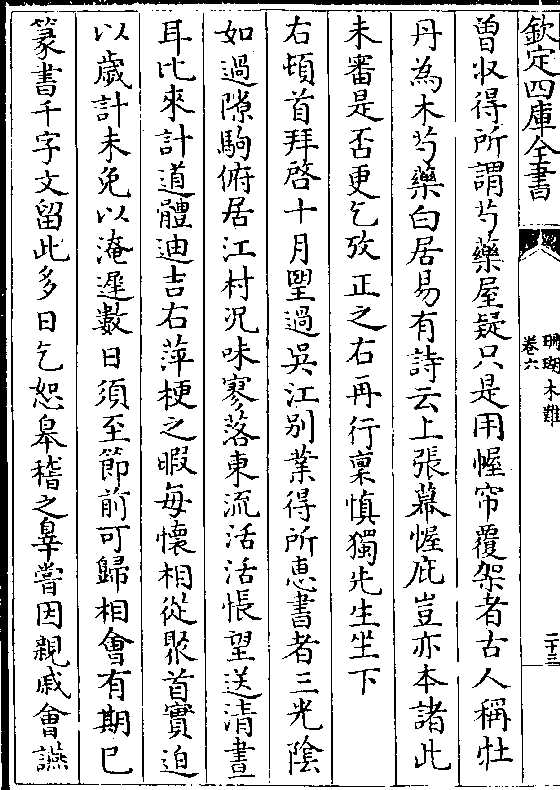 欽定四庫全書
珊瑚木難
卷六
二十三
曽収得所謂芍藥屋疑只是用幄帘覆架者古人稱牡
丹為木芍藥白居易有詩云上張幕幄庇豈亦本諸此
未審是否更乞攷正之右再行稟慎獨先生坐下
右頓首拜啓十月朢過吳江别業得所恵書者三光陰
如過隙駒俯居江村況味寥落東流活活悵望送清晝
耳比來計道體迪吉右萍梗之暇毎懐相從聚首實迫
以歲計未免以淹遲數日須至節前可歸相會有期已
篆書千字文留此多日乞恕皋稽之辠嘗因親戚會讌